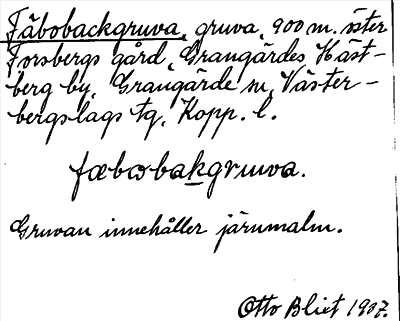 Fäbobackgruva, gruva, 900 m. öster
Forsbergs gård, Grangärdes Häst-
berg by, Grangärde sn, Väster-
bergslags tg, Kopp. l.
fæbωbakgruwa.
Gruvan innehåller järnmalm.
Otto Blixt 1907.